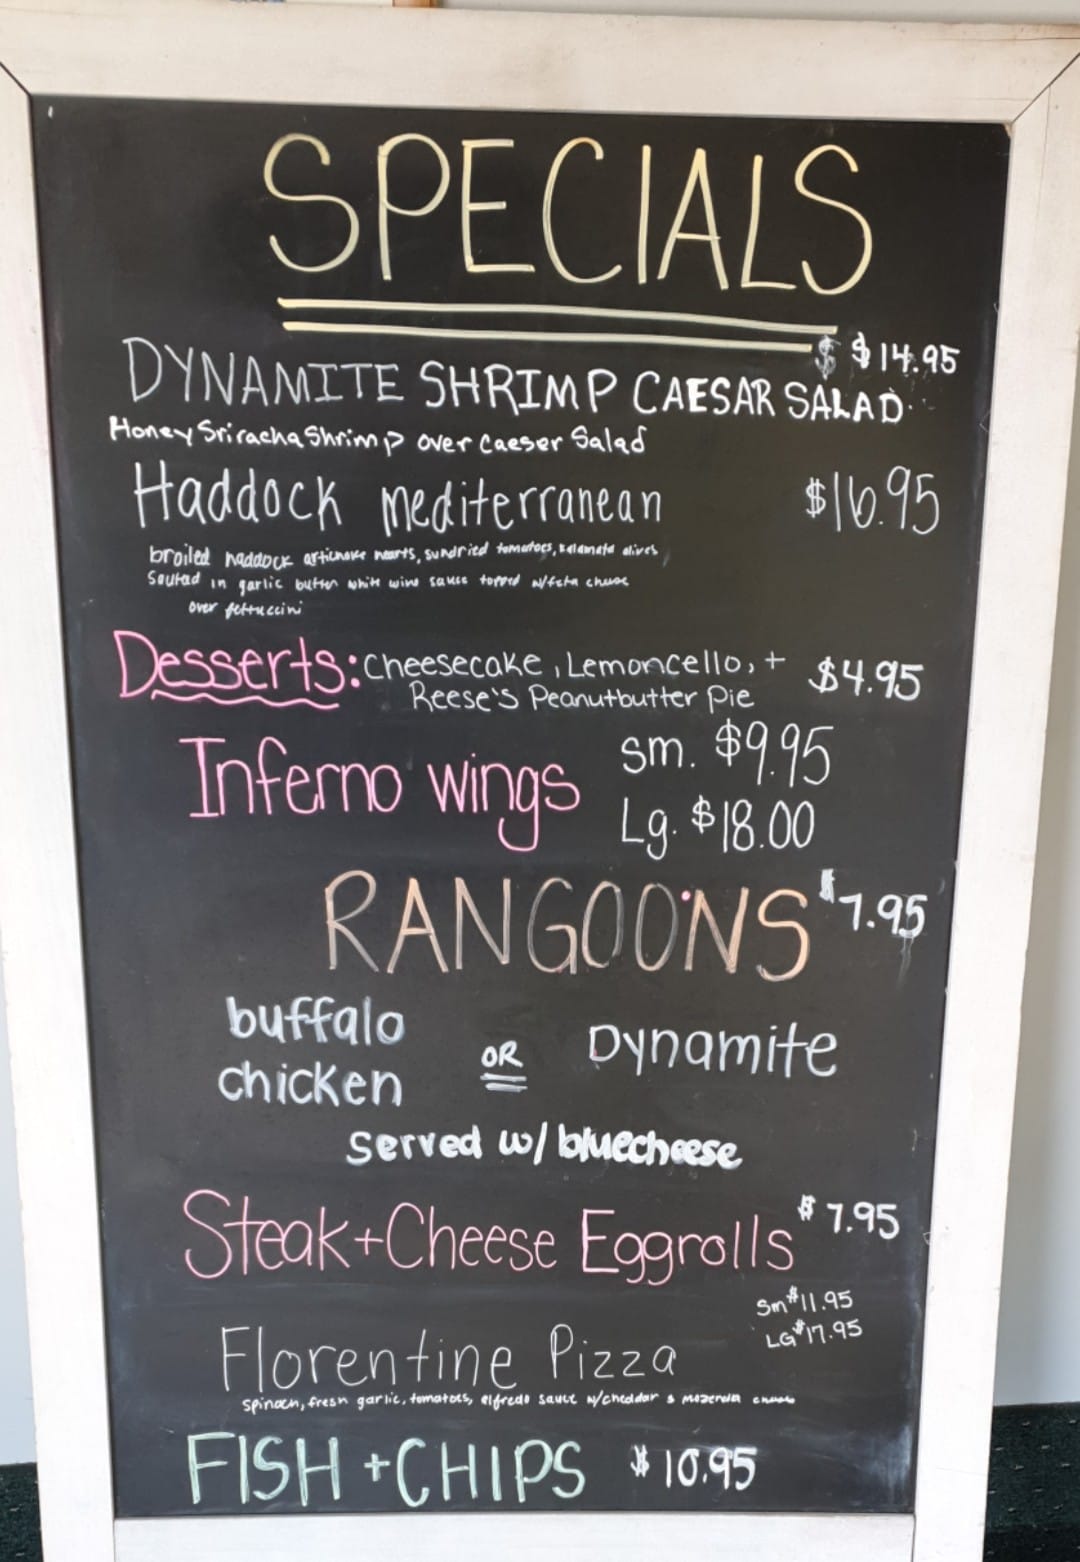 SPECIALS
$ $14.95
DYNAMITE SHRIMP CAESAR SALAD
Honey Sriracha Shrimp over Caeser Salad
Haddock Mediterranean $16.95
broiled haddock artichoke hearts, sundried tomatoes, kalamata olives
Sauted in garlic butter white wine sauce topped w/feta cheese
over fettuccini
Desserts: Cheesecake, Lemoncello, + $4.95
Reese's Peanutbutter Pie
Inferno wings sm. $9.95
Lg. $18.00
RANGOONS $7.95
buffalo
chicken OR Dynamite
Served w/ bluecheese
Steak + Cheese Eggrolls $7.95
Sm $11.95
LG $17.95
Florentine Pizza
spinach, fresh garlic, tomatoes, alfredo sauce w/cheddar & mozerella cheese
FISH + CHIPS $10.95